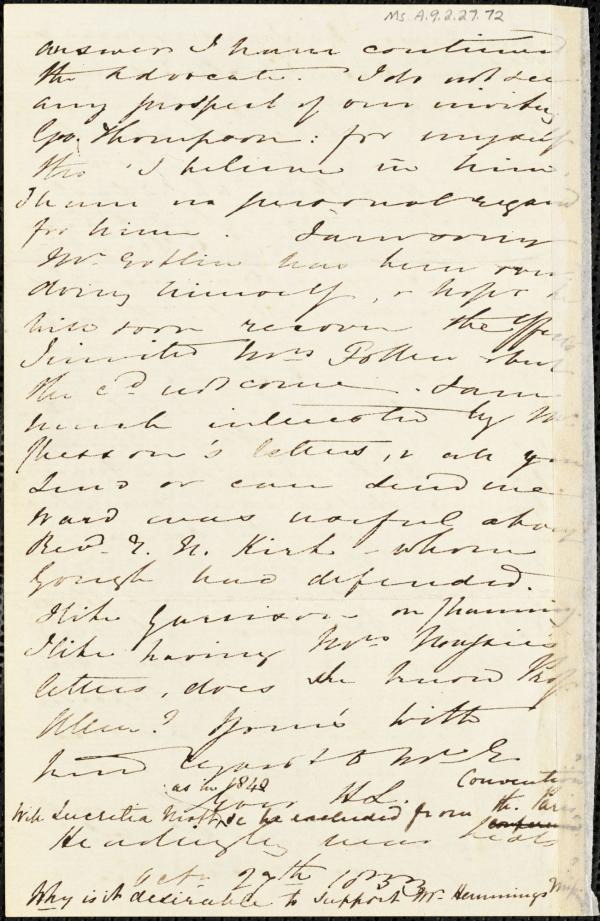 Ms. A.9.2.27.72
answer I have continued
the Advocate. I do not see
any prospect of our inviting
Geo. Thompson: for myself
tho' I believe in him,
I have no personal regard
for him. I am sorry
Mr. Estlin has been over
doing himself, & hope he
will soon recover the effects
I invited Mrs Follen but
she cd. not come. I am
much interested by Mr.
's letters, & all you
send or can send me
Ward was useful about
Revd. E. N. Kirk - whom
Gough had defended.
I like Garrison on Channing
I like having Mrs
letters, does she know Prof
Allen? Yours with
kind regards to Mr E.
as in 1840 Convention
Yours HL.
Will Lucretia Mott be excluded from the Paris
Headingley near Leeds
Octr. 27th
Why is it desirable to support Mr. Hemmings